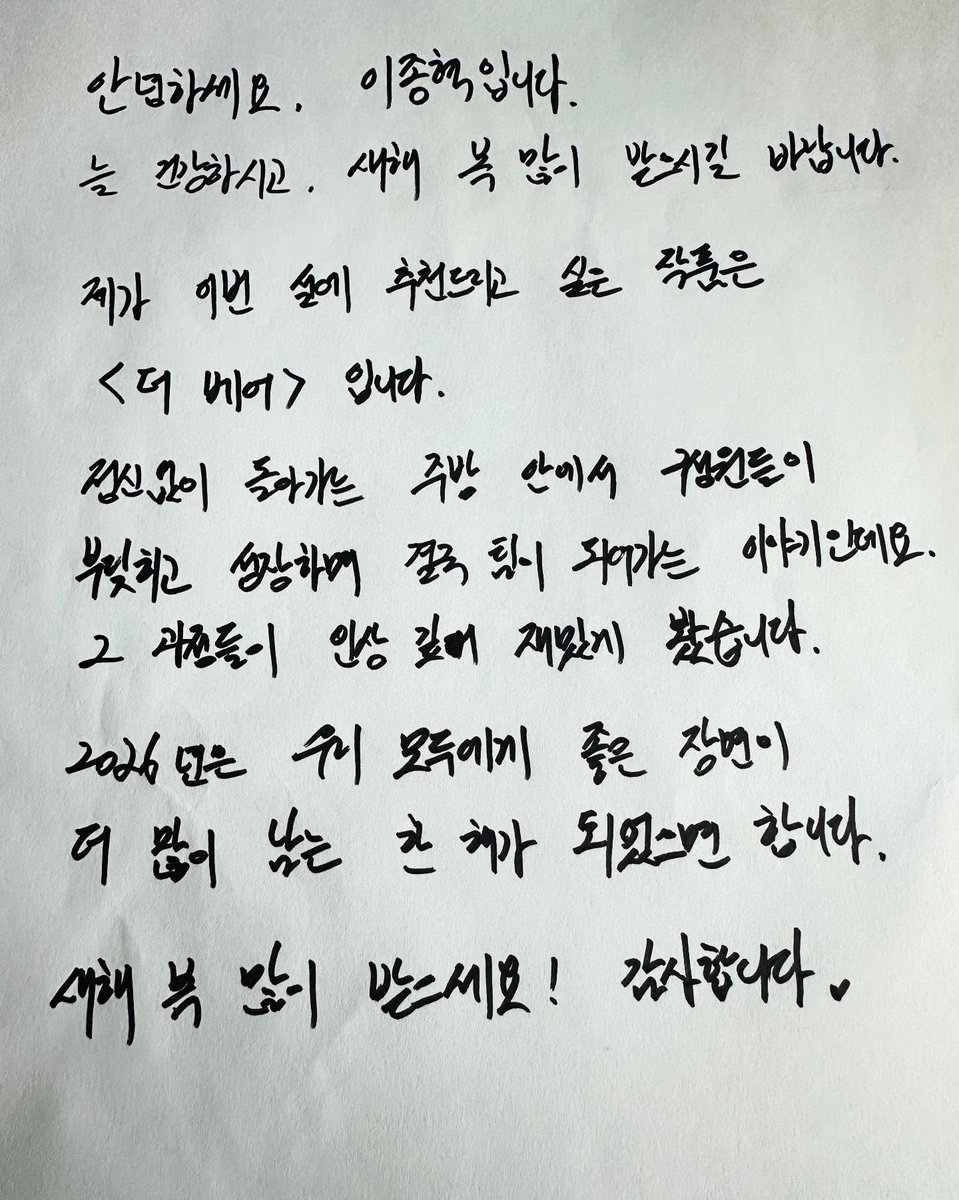 안녕하세요. 이종혁입니다.
늘 건강하시고. 새해 복 많이 받으시길 바랍니다.
제가 이번 설에 추천드리고 싶은 작품은
<더 베어> 입니다.
정신없이 돌아가는 주방 안에서 구성원들이
부딪히고 성장하며 결국 팀이 되어가는 이야기인데요.
그 과정들이 인상 깊어 재밌게 봤습니다.
2026년은 우리 모두에게 좋은 장면이
더 많이 남는 한 해가 되었으면 합니다.
새해 복 많이 받으세요! 감사합니다♥